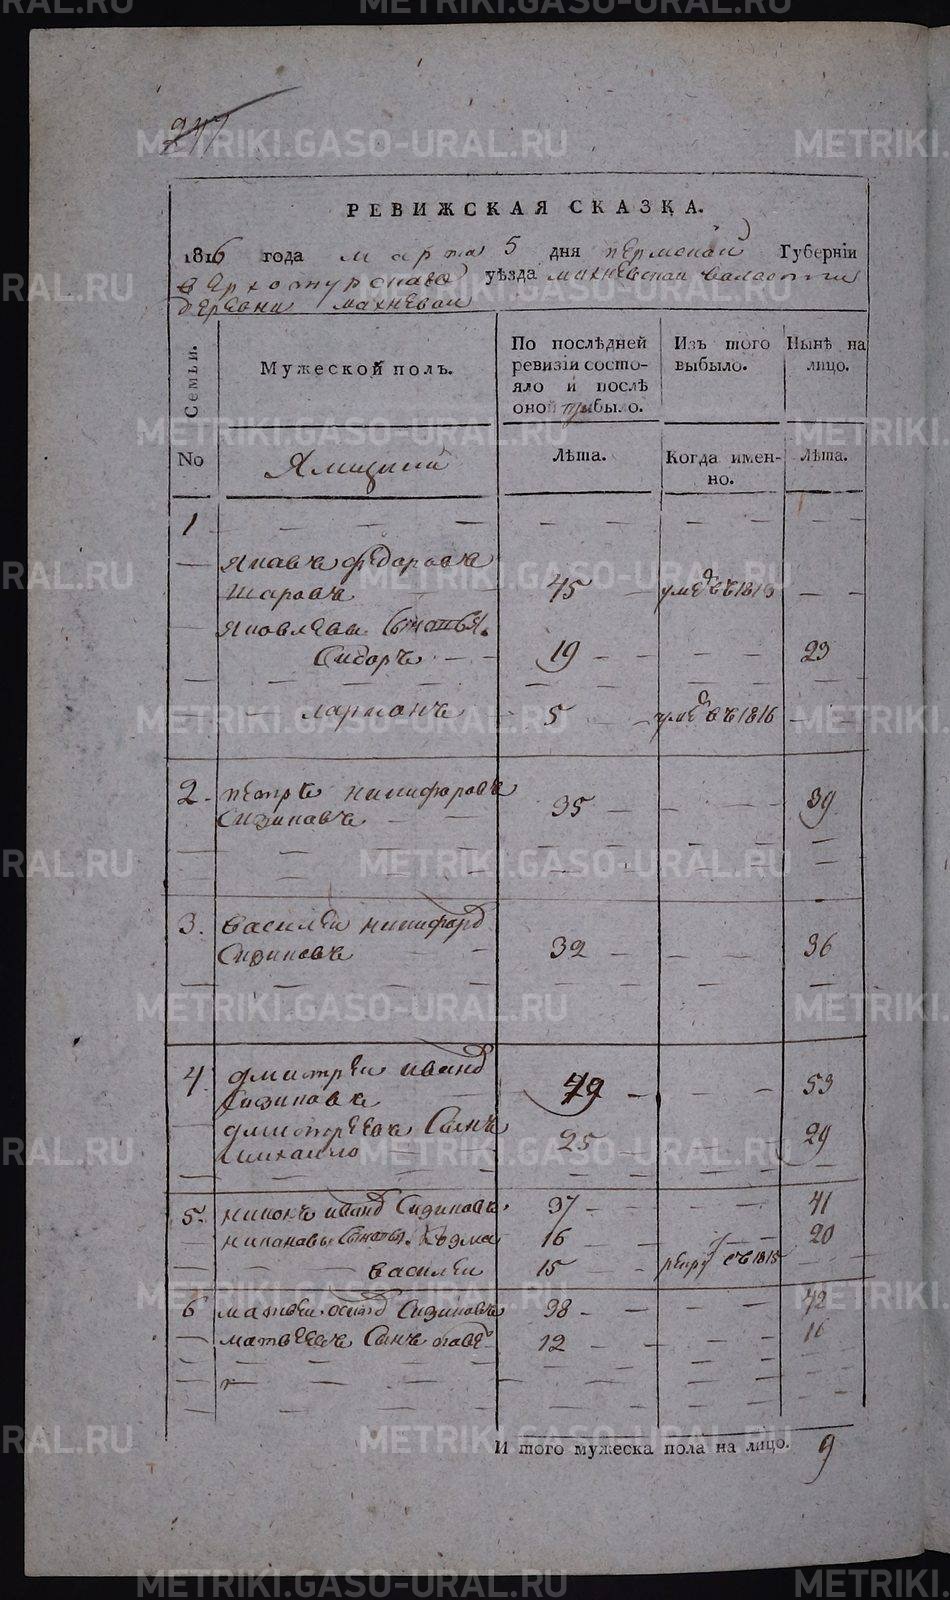 247
РЕВИЖСКАЯ СКАЗКА.
1816 года марта 5 дня пермскай Губерніи
верхотурскаго уѣзда махневскай валости
деревни махневай
Семьи.
Мужеской полъ.
По послѣдней ревизіи состояло и послѣ оной прибыло.
Изъ того выбыло.
Нынѣ на лицо.
No
Лѣта.
Когда именно.
Лѣта.
1
Яковъ федаровъ
шаровъ 45 умре въ 1813
Яковлева сыновья.
Сидоръ 19 23
ларионъ 5 умре въ 1816
2. петръ никифаровъ
Сизиковъ 35 39
3. василеи никифар
Сизиковъ 32 36
4. дмитреи иван
Сизиковъ 49 53
дмитреевъ сынъ
михаило 25 29
5. никонъ иван Сизиковъ. 37 41
никоновы сыновья. Козма 16 20
василеи 15 рекру въ 1815
6 матвеи осип Сизиковъ 38 42
матвеевъ сынъ 12 16
И того мужеска пола на лицо. 9
METRIKI.GASO-URAL.RU